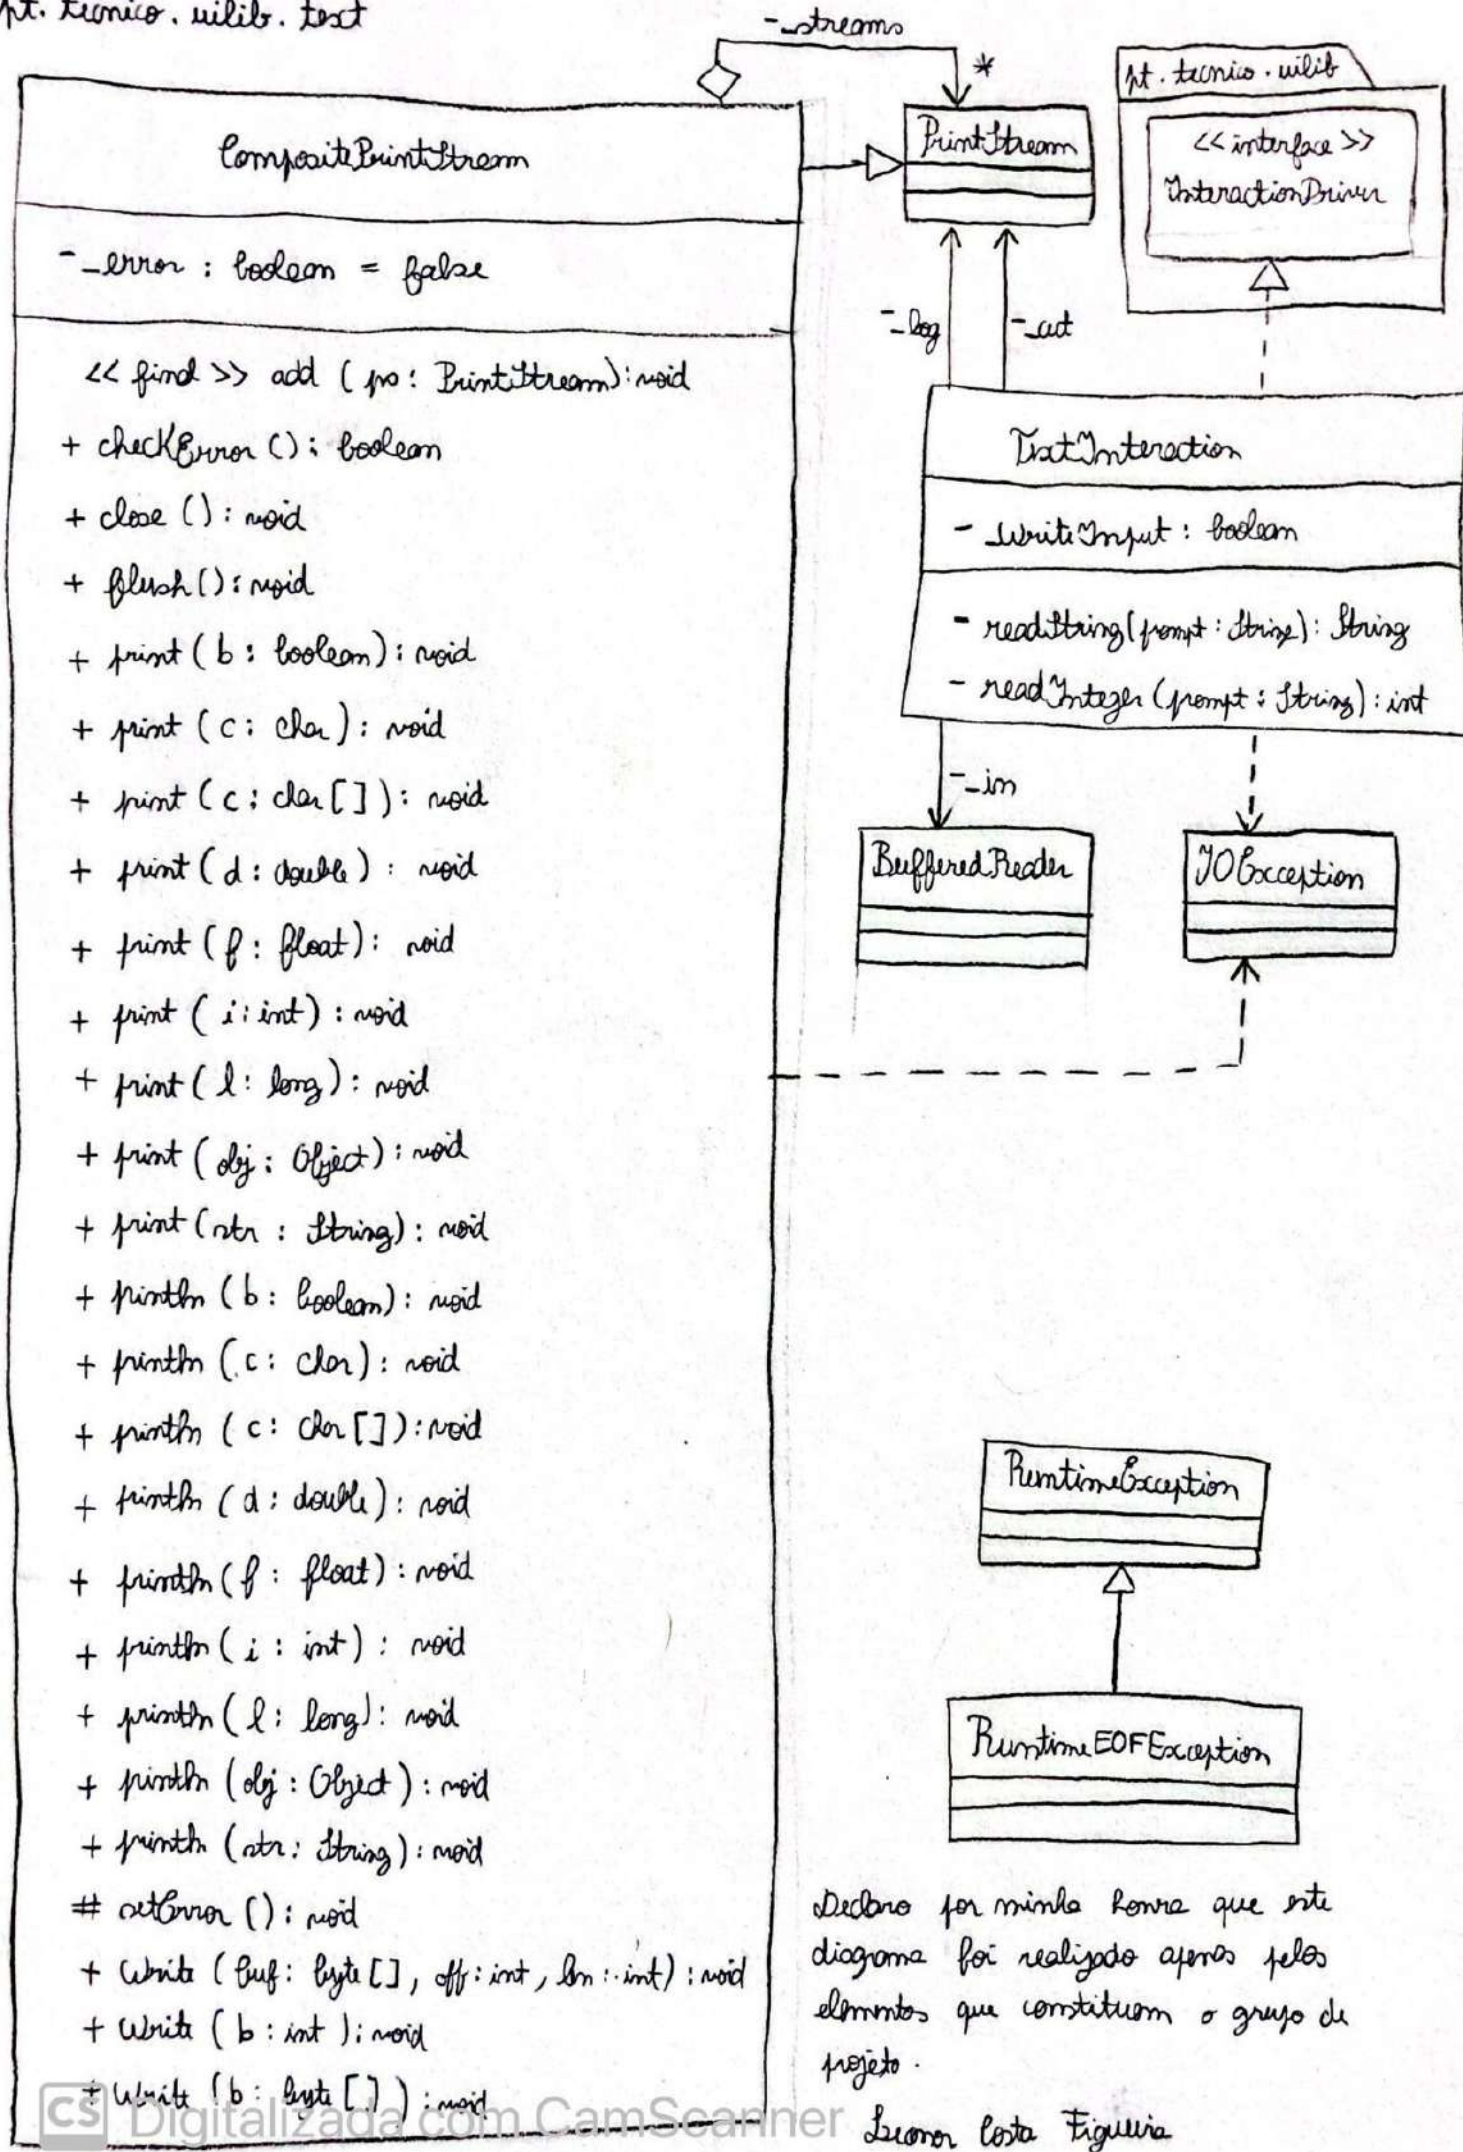 pt. tecnico. uilib. text
- _streams
*
pt. tecnico. uilib
CompositePrintStream
PrintStream
<< interface >>
InteractionDriver
- _error : boolean = false
- _log
- _out
<< final >> add ( ps : PrintStream) : void
+ checkError () : boolean
+ close () : void
+ flush () : void
+ print ( b : boolean) : void
+ print ( c : char ) : void
+ print ( c : char [ ] ) : void
+ print ( d : double ) : void
+ print ( f : float ) : void
+ print ( i : int ) : void
+ print ( l : long ) : void
+ print ( obj : Object ) : void
+ print ( str : String) : void
+ println ( b : boolean) : void
+ println ( c : char ) : void
+ println ( c : char [ ] ) : void
+ println ( d : double ) : void
+ println ( f : float ) : void
+ println ( i : int ) : void
+ println ( l : long ) : void
+ println ( obj : Object ) : void
+ println ( str : String ) : void
# setError () : void
+ Write ( buf : byte [ ] , off : int , len : int ) : void
+ Write ( b : int ) : void
+ Write ( b : byte [ ] ) : void
TextInteraction
- _writeInput : boolean
- readString ( prompt : String ) : String
- readInteger ( prompt : String ) : int
- _in
BufferedReader
IOException
RuntimeException
RuntimeEOFException
Declaro por minha honra que este
diagrama foi realizado apenas pelos
elementos que constituem o grupo de
projeto .
Leonor Costa Figueira
CS Digitalizada com CamScanner